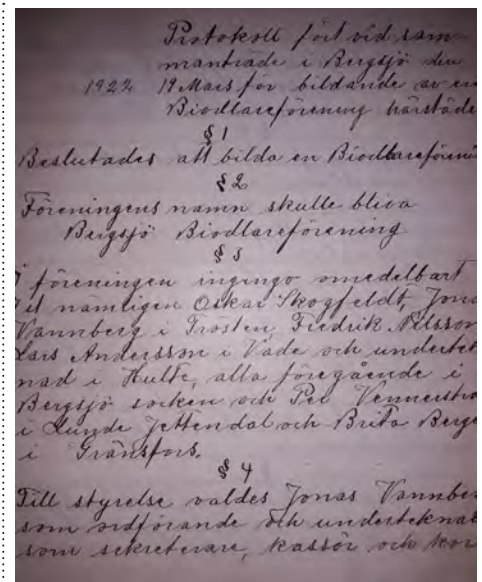 Protokoll fört vid sam-
manträde i Bergsjö den
1922 19 Mars för bildande av en
Biodlareförening härstäde
§ 1
Beslutades att bilda en Biodlareföreni
§ 2
Föreningens namn skulle bliva
Bergsjö Biodlareförening
§ 3
I föreningen ingingo omedelbart
nämligen Oskar Skogfeldt, Jona
Vannberg i Trösten, Fredrik Nilsson
Lars Andersson i Vade och underteck
nad i Hulte, alla föregående i
Bergsjö socken och Per Vennerstro
i Lunde Jettendal och Brita Berge
i Gränsfors.
§ 4
Till styrelse valdes Jonas Vannber
som ordförande och undertekna
som sekreterare, kassör och kor